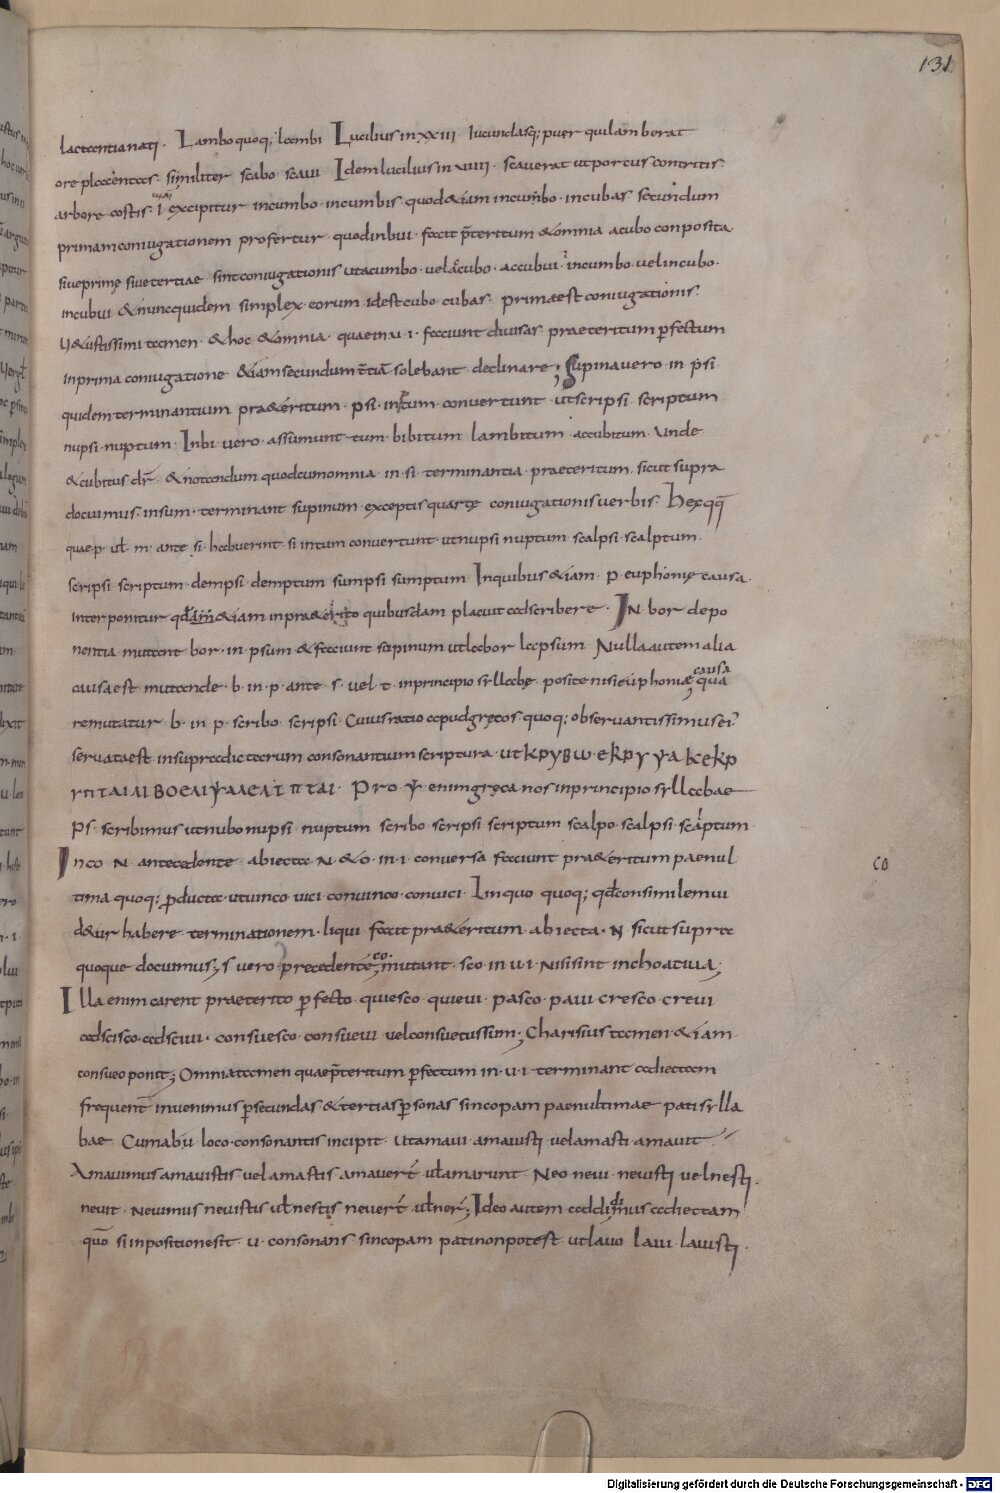 131
lactantia nati · Lambo quoq; lambi Lucilius in xxiii · Iucundasq; puer qui lamberat
ore placentas · similiter scabo · scavi Idem lucilius in viiii · scaverat ut porcus contritis
arbore costis · excipitur incumbo · incumbis quod &iam incumbo · incubas secundum
primam coniugationem profertur · quod in bui · facit p̄teritum & omnia a cubo conposita
sive primę sive tertiae sint coniugationis ut accumbo · vel accubo · accubui · incumbo · vel incubo ·
incubui & nunc quidem simplex eorum id est cubo · cubas · primae est coniugationis ·
V&ustissimi tamen · & hoc & omnia · quae in · u · i · faciunt divisas · praeteritum ꝑfectum
in prima coniugatione &iam secundum t̄tiā solebant declinare ; Supina vero in psi
quidem terminantium pra&eritum · psi · in tum · convertunt · ut scripsi · scriptum
nupsi · nuptum · In bi vero · assumunt tum · bibitum lambitum accubitum · Unde
& cubitus dr̄ · & notandum quod cum omnia · in · si · terminantia · praeteritum · sicut supra
docuimus · in sum · terminant supinum · exceptis quartę coniugationis verbis · Hęc qq̄
quae p · ul̄ · m · ante · si · habuerint · si in tum convertunt · ut nupsi nuptum · scalpsi · scalptum ·
scripsi scriptum · dempsi · demptum sumpsi sumptum In quibus &iam · p · euphonię causa ·
interponitur &iam in pra&erito quibusdam placuit adscribere · IN bor depo
nentia · mutant bor · in · psum & faciunt supinum ut labor lapsum Nulla autem alia
causa est mutande · b · in · p · ante · s · vel · t · in principio syllabę posite nisi euphonię causa qua
remutatur b · in · p · scribo · scripsi · Cuius ratio apud gręcos quoq; observantissimus ei
servata est in supradictarum consonantium scriptura · ut
Pro Ψ enim gręca nos in principio syllabae
Ps · scribimus ut nubo nupsi · nuptum scribo · scripsi scriptum scalpo · scalpsi · scalptum
In co N antecedente abiecta N & o · in · i · conversa faciunt pra&eritum paenul
tima quoq; ꝓducta · ut vinco vici · convinco · convici · Linquo quoq; qd̄ consimilem vi
d&ur habere terminationem · liqui facit pra&eritum abiecta · N · sicut supra
quoque docuimus ; s vero precedente co mutant · sco · in u · i · Nisi sint inchoativa ;
Illa enim carent praeterito ꝑfecto · quiesco quievi · pasco · pavi cresco · crevi
adscisco · adscivi · consuesco · consuevi vel consuetus sum ; Charisius tamen &iam
consueo ponit ; Omnia tamen quae p̄teritum ꝑfectum in · u · i · terminant adiectam
frequent̄ invenimus ꝑ secundas & tertias ꝑsonas sincopam paenultimae pati sylla
bae Cum ab u loco · consonantis incipit · ut amavi · amavisti · vel amasti amavit
Amavimus amavistis vel amastis amaver̄t ul̄ amarunt · Neo nevi · nevisti vel nesti ·
nevit · nevimus nevistis ul̄ nestis never̄t · ul̄ ner̄ ; Ideo autem addidimus adiectam
quō si in positione sit · u · consonans sincopam pati non potest · ut lavo lavi · lavisti ·
co
Digitalisierung gefördert durch die Deutsche Forschungsgemeinschaft - DFG